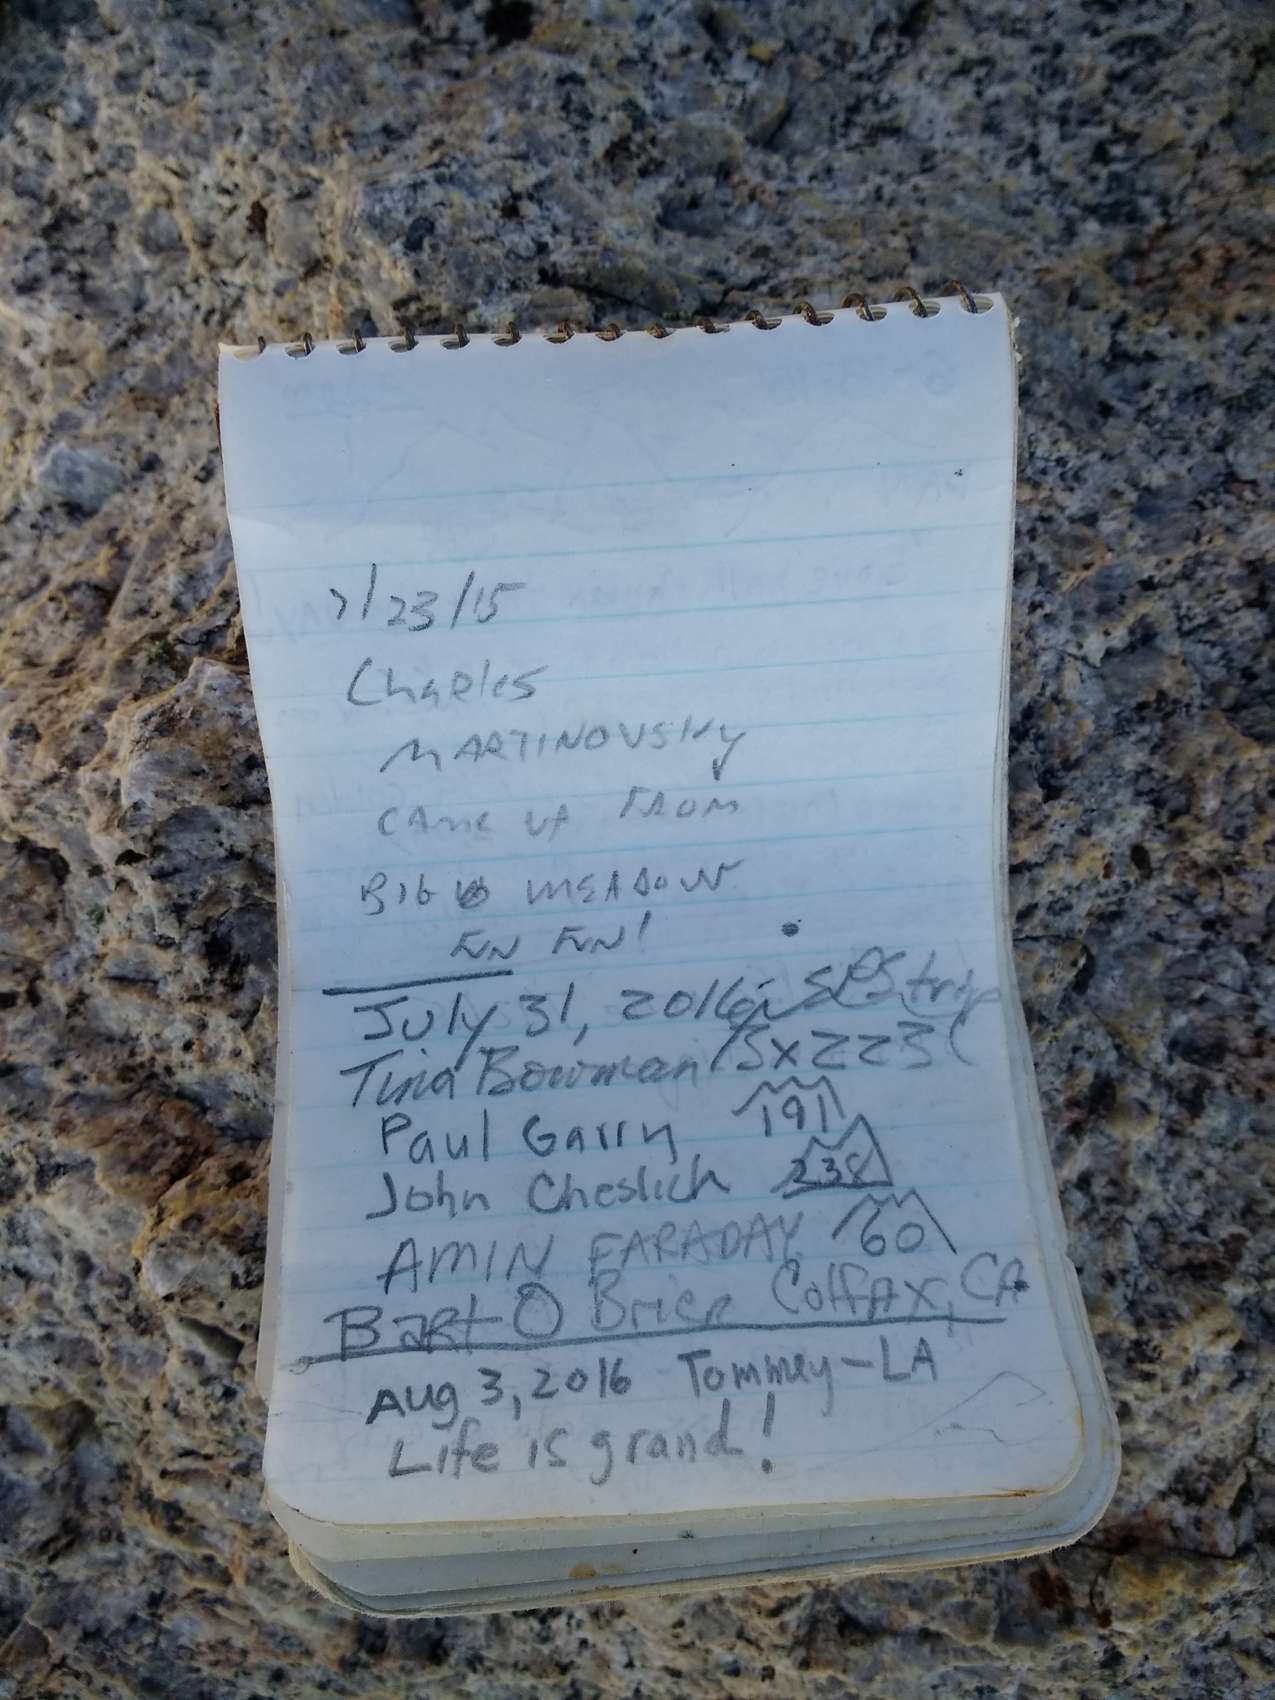 7/23/15
Charles
MARTINOVSKY
CAME UP FROM
BIG MEADOW
FUN FUN!
July 31, 2016 SPS trip
Tina Bowman 3x223
Paul Garry 191
John Cheslick 238
AMIN FARADAY 60
Bart O Brien Colfax, CA
Aug 3, 2016 Tommey-LA
Life is grand!